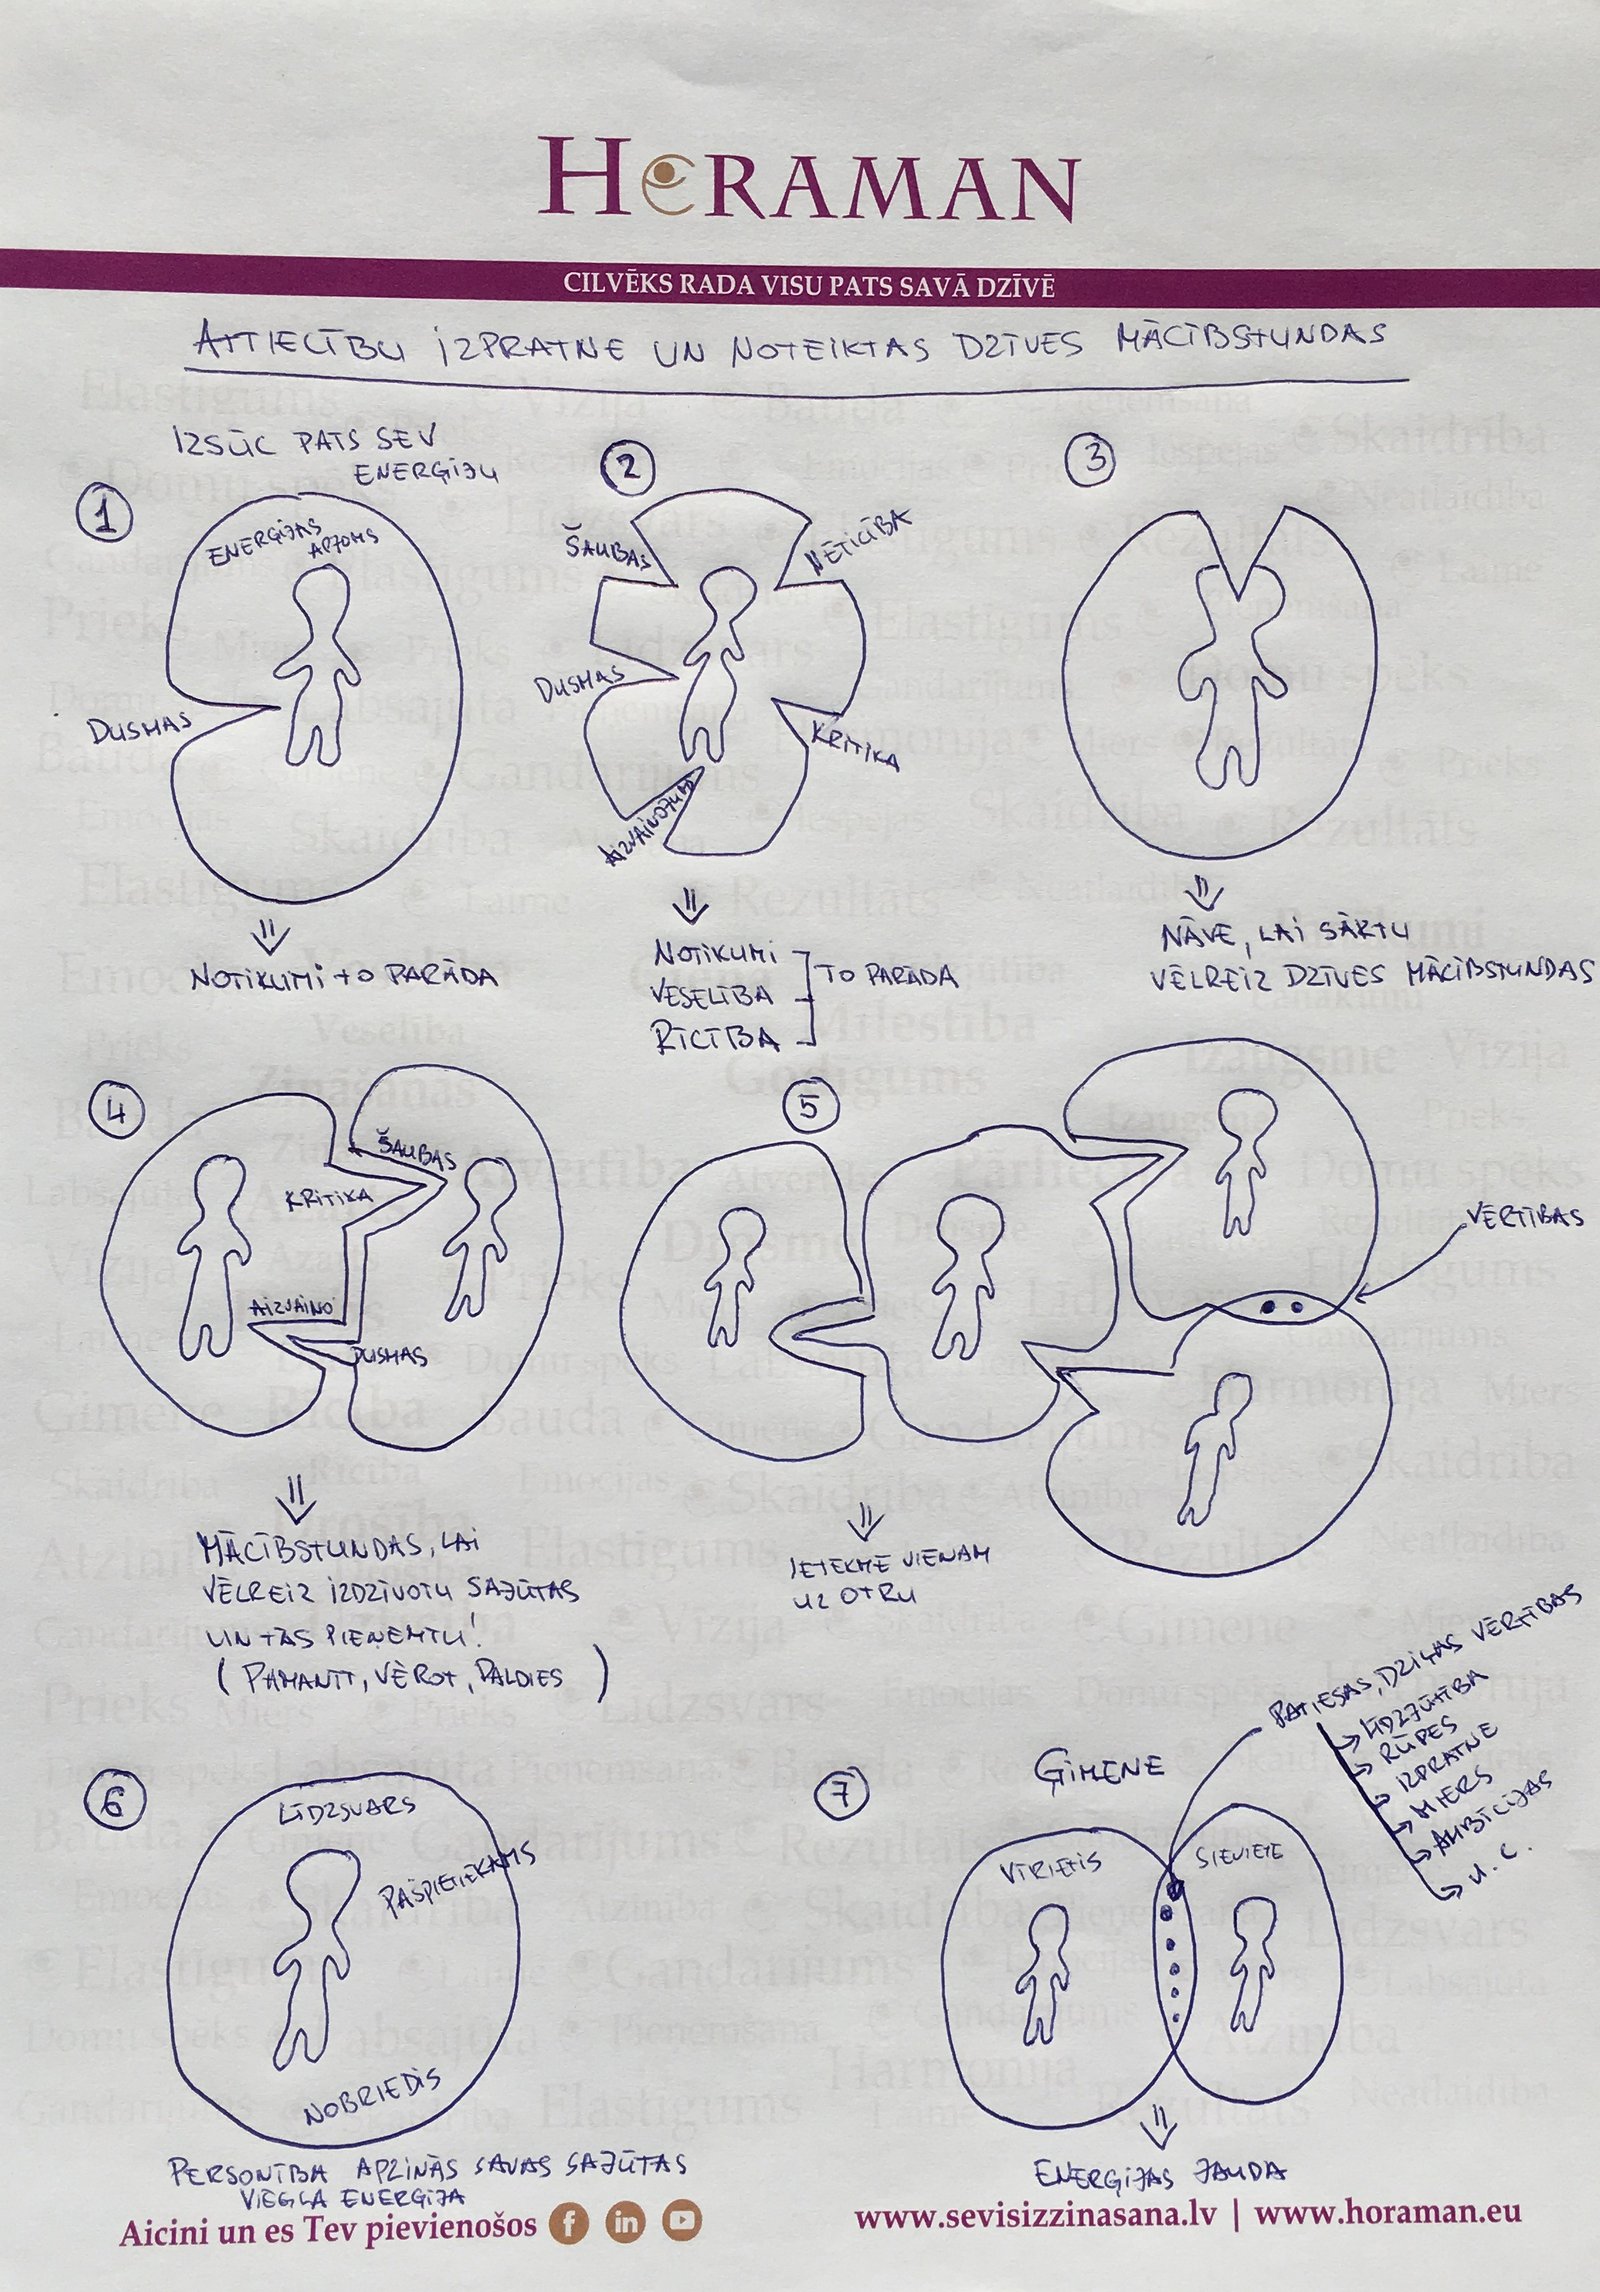 HORAMAN
CILVĒKS RADA VISU PATS SAVĀ DZĪVĒ
ATTIECĪBU IZPRATNE UN NOTEIKTAS DZĪVES MĀCĪBSTUNDAS
IZSŪC PATS SEV
ENERĢIJU
1
ENERĢIJAS
APJOMS
DUSMAS
NOTIKUMI TO PARĀDA
2
ŠAUBAS
NETICĪBA
DUSMAS
KRITIKA
AIZVAINOJUMI
NOTIKUMI
VESELĪBA
RĪCĪBA
TO PARĀDA
3
NĀVE, LAI SĀKTU
VĒLREIZ DZĪVES MĀCĪBSTUNDAS
4
ŠAUBAS
KRITIKA
AIZVAINO
DUSMAS
MĀCĪBSTUNDAS, LAI
VĒLREIZ IZDZĪVOTU SAJŪTAS
UN TĀS PIEŅEMTU!
(PAMANĪT, VĒROT, PALDIES)
5
VĒRTĪBAS
IETEKME VIENAM
UZ OTRU
6
LĪDZSVARS
PAŠPIETIEKAMS
NOBRIEDIS
PERSONĪBA APZINĀS SAVAS SAJŪTAS
VIEGLA ENERĢIJA
7
ĢIMENE
PATIESAS, DZIĻAS VĒRTĪBAS
LĪDZJŪTĪBA
RŪPES
IZPRATNE
MIERS
AMBĪCIJAS
U.C.
VĪRIETIS
SIEVIETE
ENERĢIJAS JAUDA
Aicini un es Tev pievienošos
www.sevisizzinasana.lv | www.horaman.eu